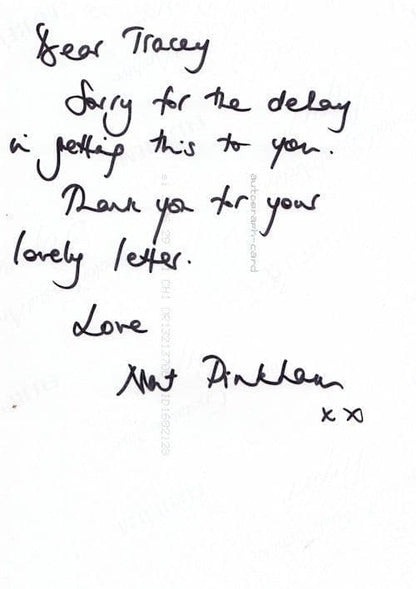 Dear Tracey
Sorry for the delay
in getting this to you.
Thank you for your
lovely letter.
Love
Nat Pinkham
x x
autograph-card